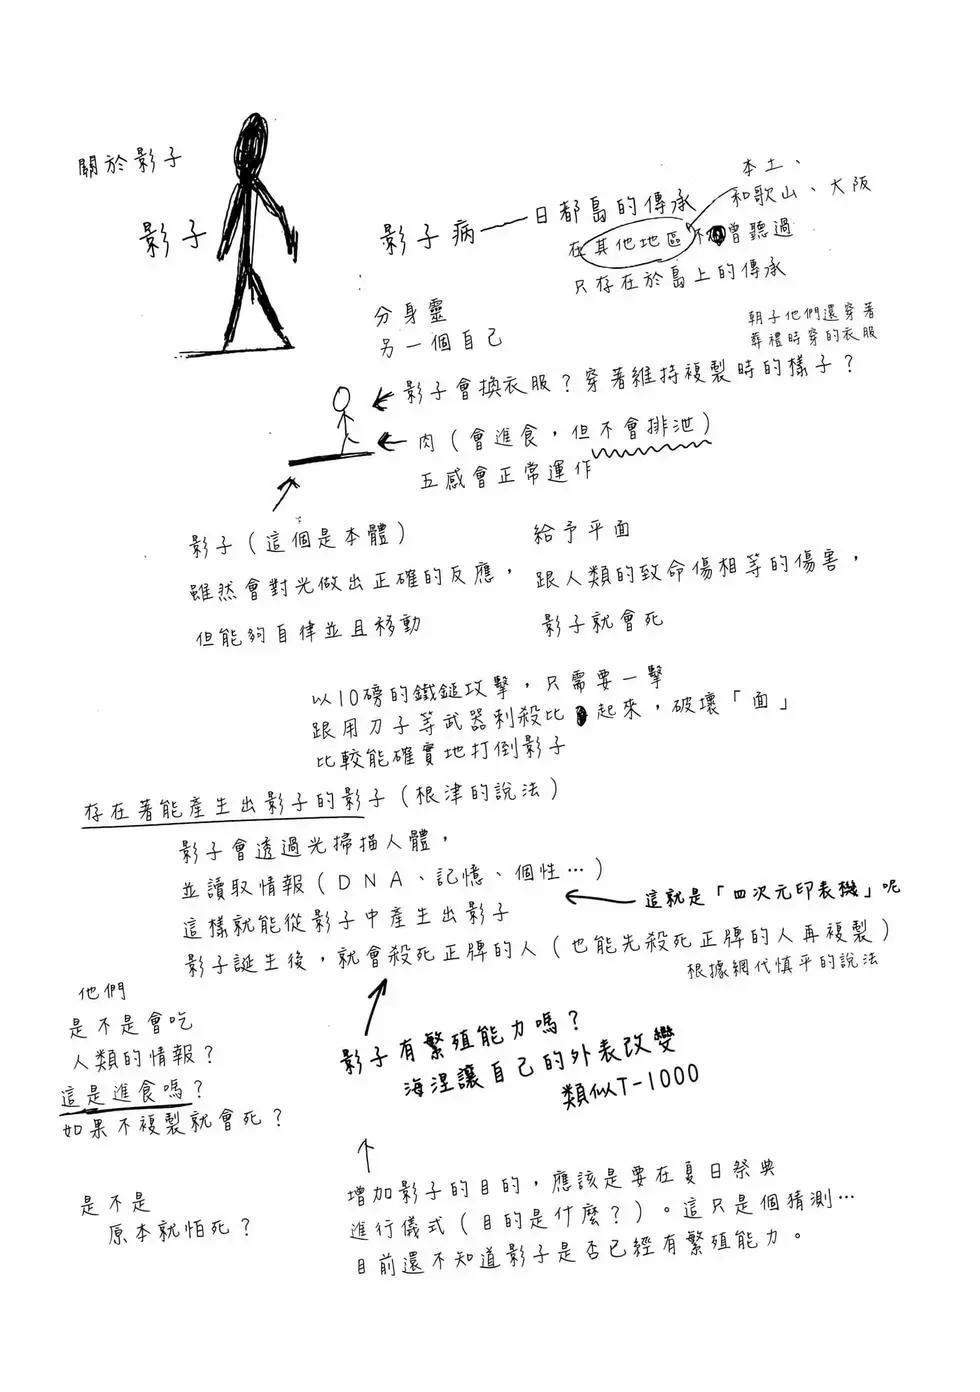 關於影子
影子
影子病
日都島的傳承
本土、
和歌山、大阪
在其他地區不曾聽過
只存在於島上的傳承
分身靈
另一個自己
朝子他們還穿著
葬禮時穿的衣服
影子會換衣服？穿著維持複製時的樣子？
肉（會進食，但不會排泄）
五感會正常運作
影子（這個是本體）
雖然會對光做出正確的反應，
但能夠自律並且移動
給予平面
跟人類的致命傷相等的傷害，
影子就會死
以10磅的鐵鎚攻擊，只需要一擊
跟用刀子等武器刺殺比起來，破壞「面」
比較能確實地打倒影子
存在著能產生出影子的影子（根津的說法）
影子會透過光掃描人體，
並讀取情報（DNA、記憶、個性…）
這樣就能從影子中產生出影子
這就是「四次元印表機」呢
影子誕生後，就會殺死正牌的人（也能先殺死正牌的人再複製）
根據網代慎平的說法
他們
是不是會吃
人類的情報？
這是進食嗎？
如果不複製就會死？
影子有繁殖能力嗎？
海涅讓自己的外表改變
類似T-1000
是不是
原本就怕死？
增加影子的目的，應該是要在夏日祭典
進行儀式（目的是什麼？）。這只是個猜測…
目前還不知道影子是否已經有繁殖能力。